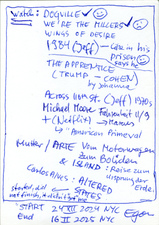 Watch: DOGVILLE ✓
WE'RE THE MILLERS ✓
WINGS OF DESIRE
1984 (Jeff) – he's in his
prison says he
THE APPRENTICE
(TRUMP – COHEN)
by
Across 110th St. (Jeff) 1970s
Michael Moore Fahrenheit 11/9
+ (Netflix) →
"American Primeval
Mubi / ARTE Von Motorwegen
zum Boliden
& ISLAND: Reise zum
Ursprung der
Erde.
Carlos / Ngs: ALTERED
STATES
started, did
not finish, & didn't
START 24 XII 2024 NYC
End 16 II 2025 NYC
Egon